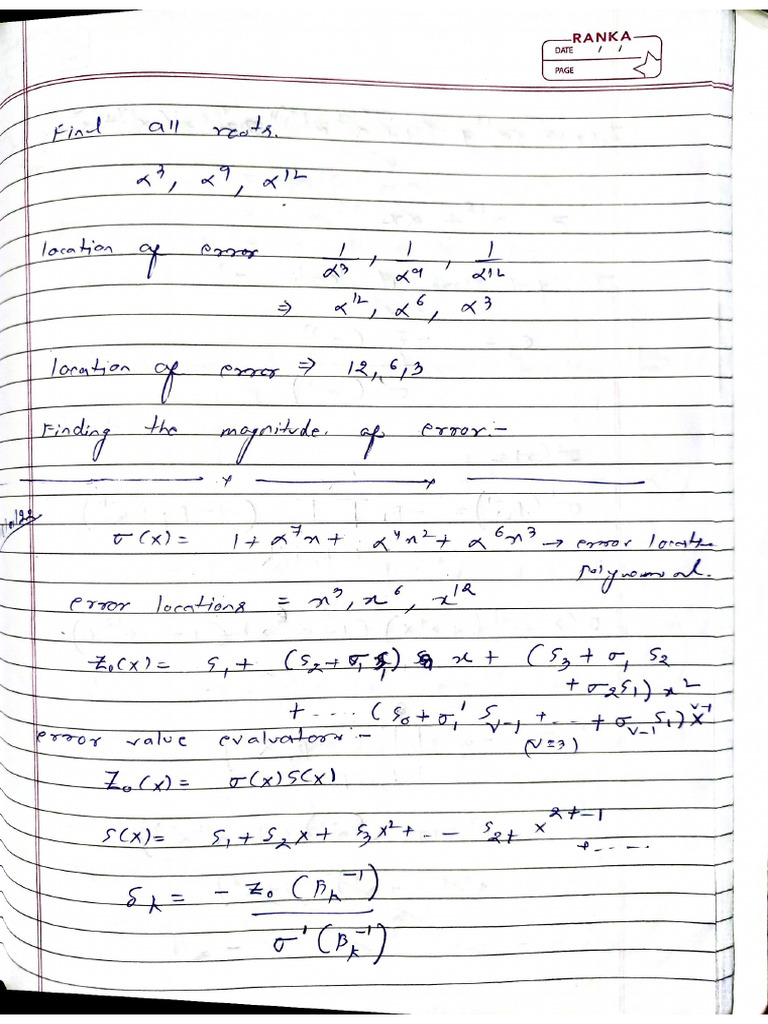 RANKA
DATE / /
PAGE
Find all roots.
α³, α⁹, α¹²
location of error 1/α³, 1/α⁹, 1/α¹²
⇒ α¹², α⁶, α³
location of error ⇒ 12, 6, 3
Finding the magnitude of error:-
σ(x) = 1 + α⁷x + α⁴x² + α⁶x³ → error locatn
polynomial.
error locations = x³, x⁶, x¹²
Z₀(x) = S₁ + (S₂ + σ₁ S₁) x + (S₃ + σ₁ S₂
+ σ₂S₁) x²
+ .... (S₀ + σ₁' S_{v-1} + ... + σ_{v-1} S₁) x^{v-1}
error value evaluators:-
(v=3)
Z₀(x) = σ(x)S(x)
S(x) = S₁ + S₂x + S₃x² + .. - S₂ₜ x^{2t-1}
+ - ....
δₖ = - Z₀(βₖ⁻¹) / σ'(βₖ⁻¹)